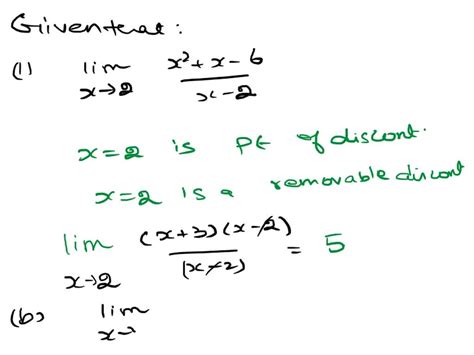 Given that :
(1) lim x→2 x² + x - 6 / x - 2
x = 2 is pt of discont.
x = 2 is a removable discont
lim x→2 (x+3)(x-2) / (x-2) = 5
(b) lim x→